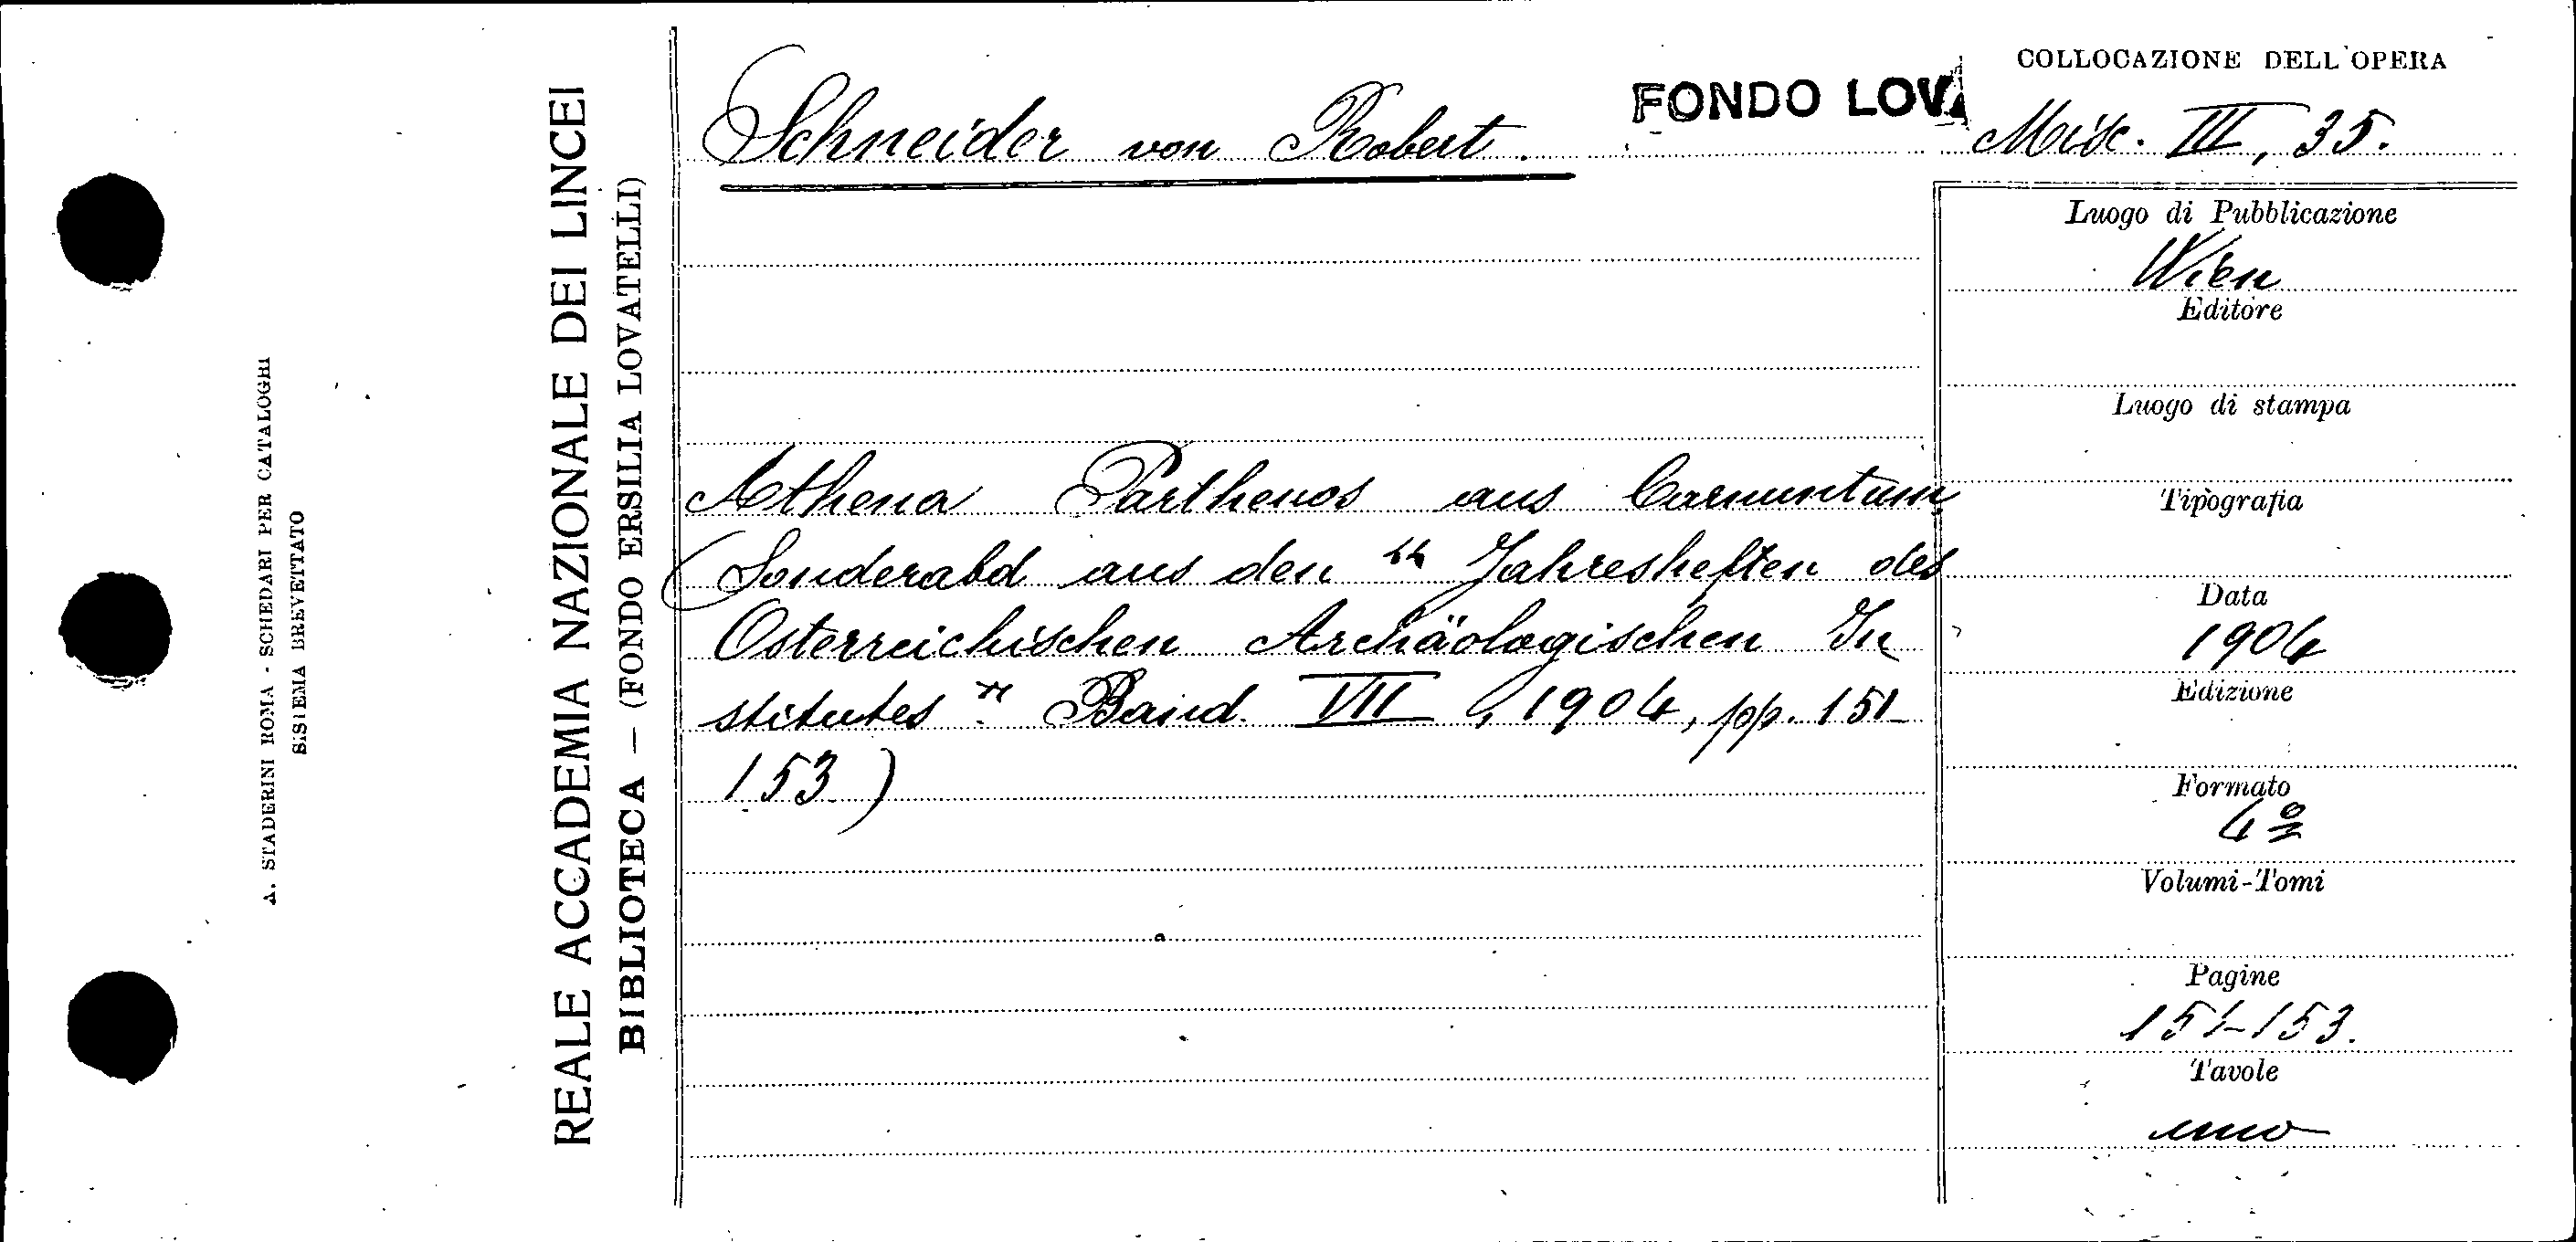 A. STADERINI ROMA - SCHEDARI PER CATALOGHI
SISTEMA BREVETTATO
REALE ACCADEMIA NAZIONALE DEI LINCEI
BIBLIOTECA — (FONDO ERSILIA LOVATELLI)
Schneider von Robert.
FONDO LOVA
COLLOCAZIONE DELL'OPERA
Misc. III, 35.
Athena Parthenos aus Carnuntum
(Sonderabd aus den "Jahresheften des
Osterreichischen Archäologischen In
stitutes" Band. VII, 1904, pp. 151-
153)
Luogo di Pubblicazione
Wien
Editore
Luogo di stampa
Tipografia
Data
1904
Edizione
Formato
4º
Volumi-Tomi
Pagine
151-153.
Tavole
uno